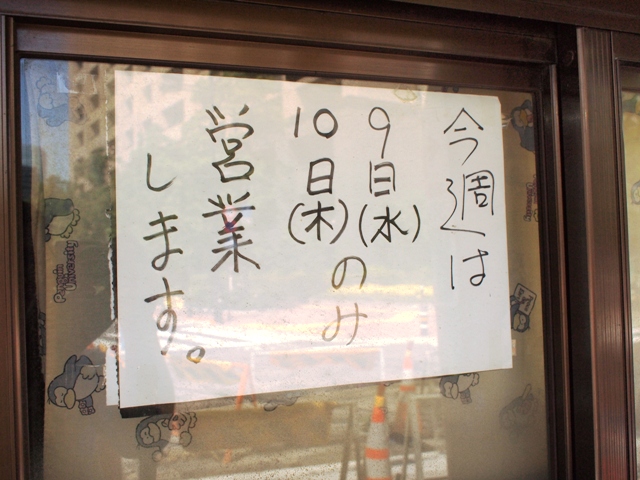 今週は
9日(水)
10日(木)
のみ
営業
します。
Penguin
University